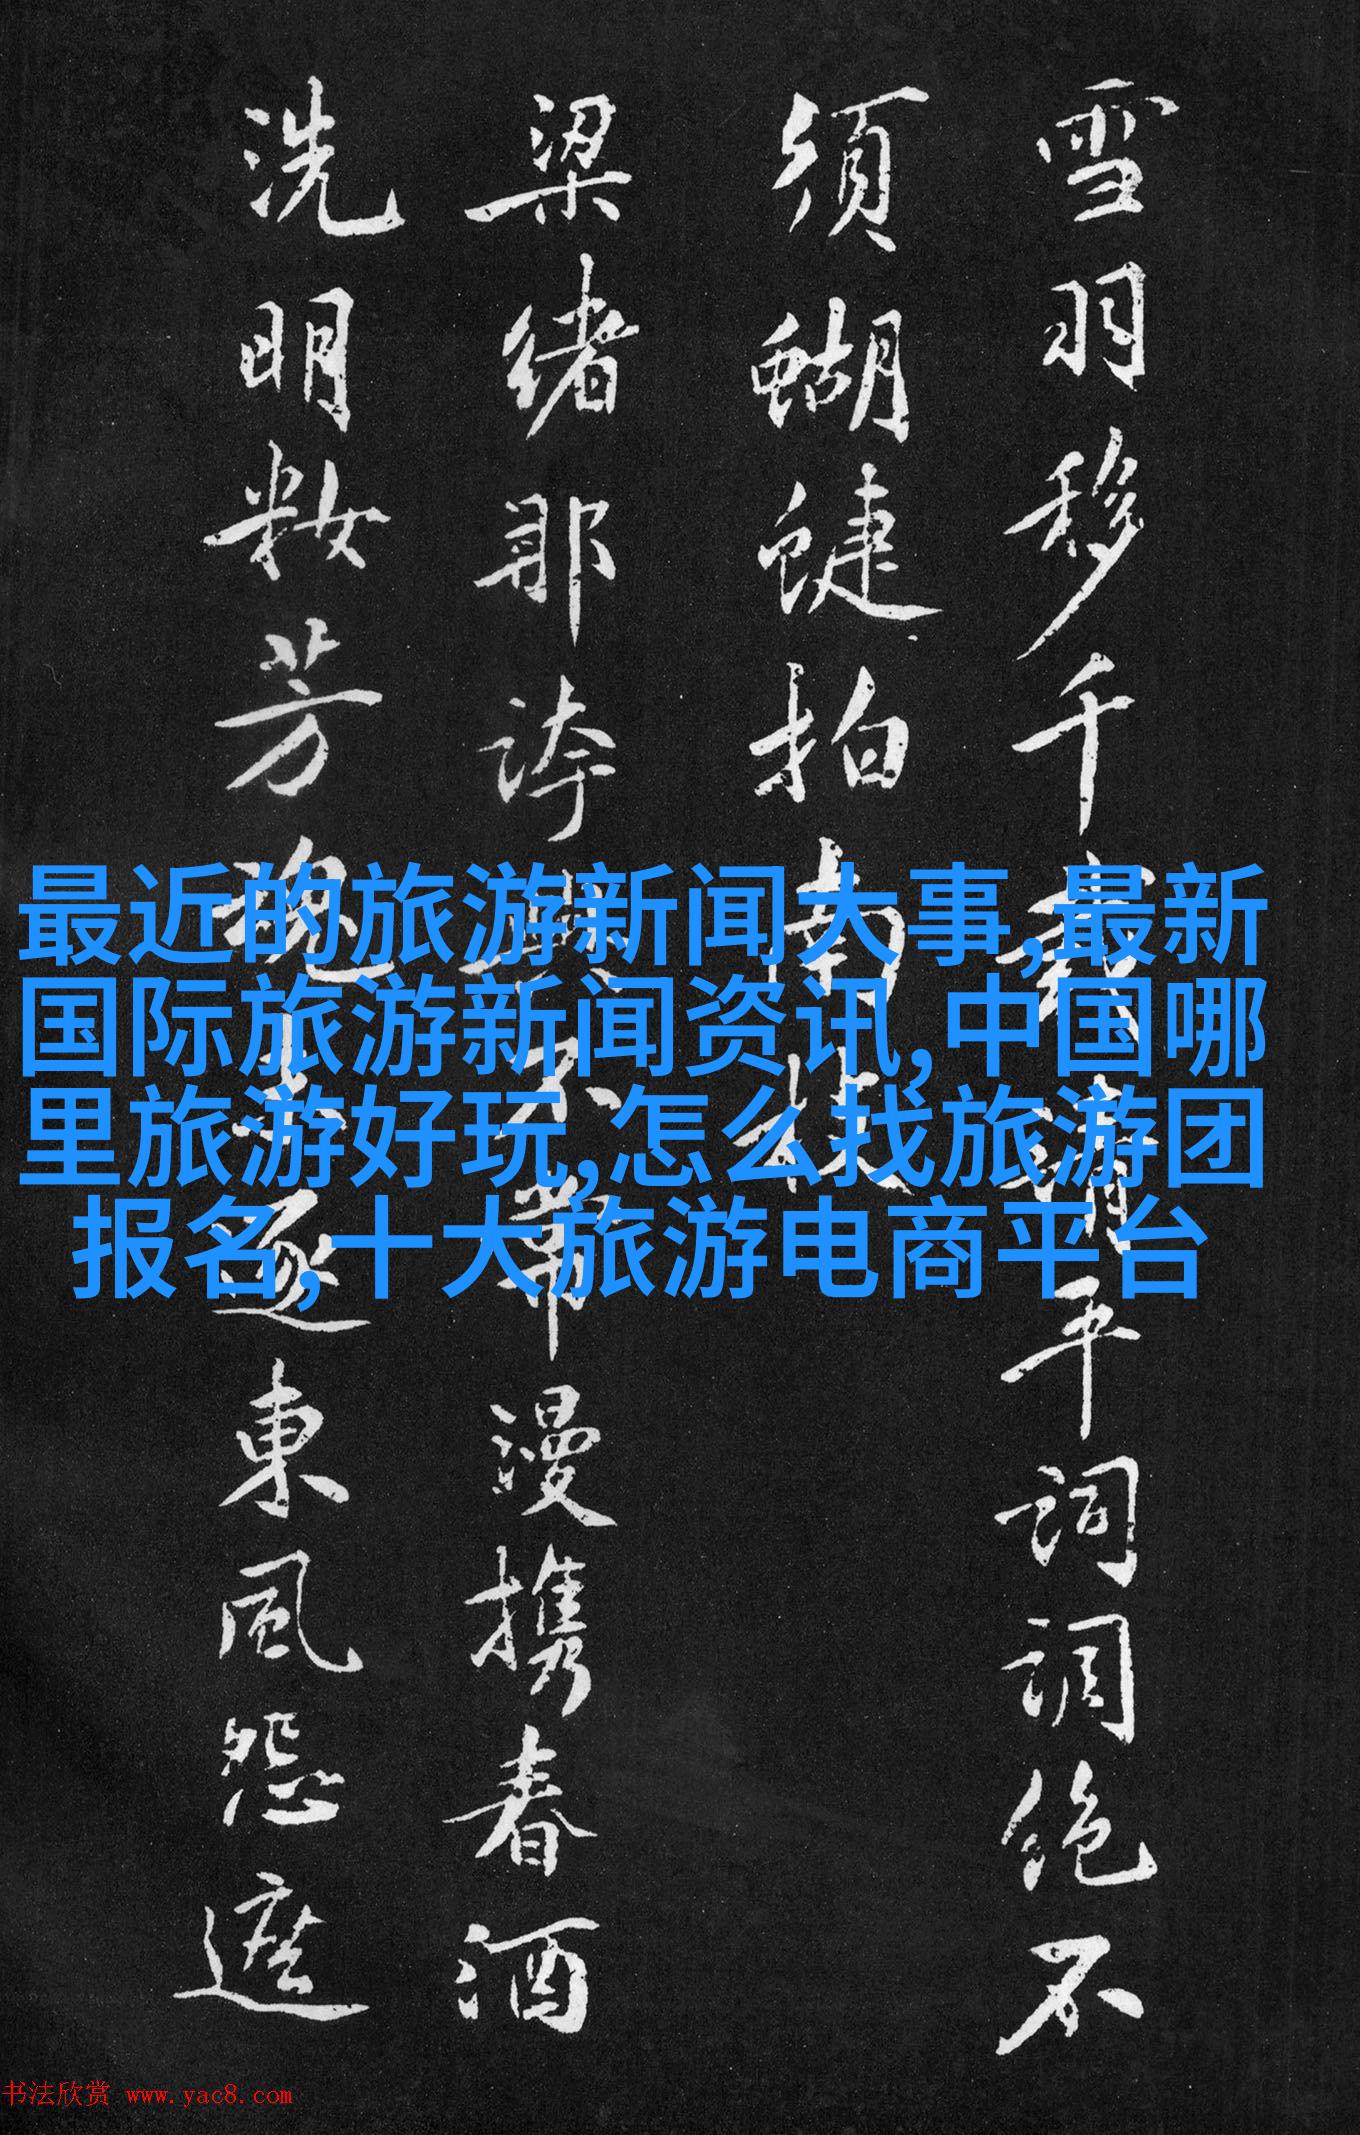 雪羽移千載清平詞調絕不
須蝴蜨拍南枝
梁緒那誇不漫携春酒
洗明籹芳魂逐東風怨遮
最近的旅游新闻大事,最新
国际旅游新闻资讯,中国哪
里旅游好玩,怎么找旅游团
报名,十大旅游电商平台
书法欣赏 www.yac8.com